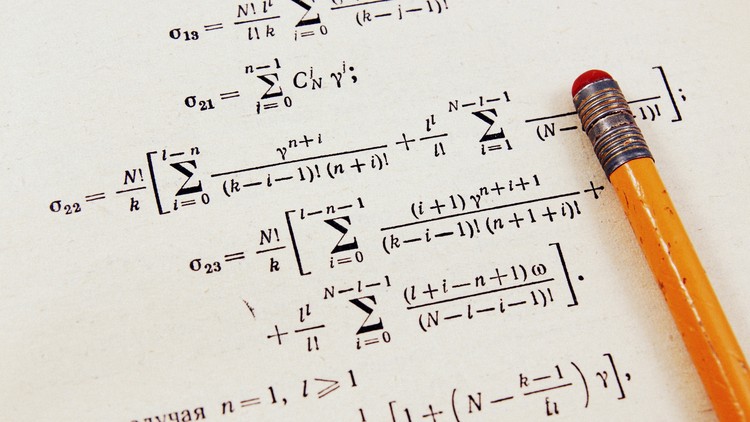 σ₁₃ = N! lˡ / l! k ∑ i=0 (k−j−1)!
σ₂₁ = ∑_{j=0}^{n−1} C_N^j γ^j;
σ₂₂ = N!/k [ ∑_{i=0}^{l−n} γ^{n+i} / (k−i−1)! (n+i)! + lˡ/l! ∑_{i=1}^{N−l−1} / (N− 1)! ];
σ₂₃ = N!/k [ ∑_{i=0}^{l−n−1} (i+1) γ^{n+i+1} / (k−i−1)! (n+1+i)! +
+ lˡ/l! ∑_{i=0}^{N−l−1} (l+i−n+1) ω / (N−l−i−1)! ].
лучая n=1, l⩾1
[1+(N− k−1 / ) γ],